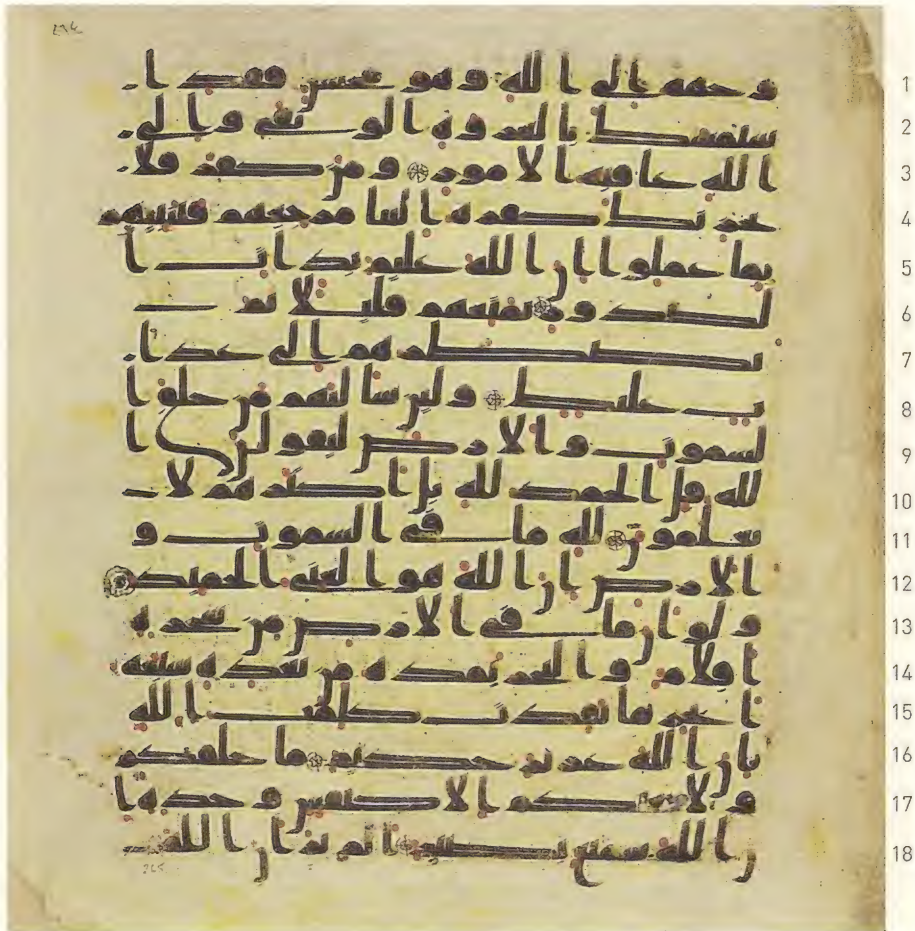 1 وجهه الى الله وهو محسن فقد ا
2 ستمسك بالعروه الوثقى والى
3 الله عاقبه الامور ومن كفر فلا
4 يحزنك كفره الينا مرجعهم فننبئهم
5 بما عملوا ان الله عليم بذات ا
6 لصدور نمتعهم قليلا ثم
7 نضطرهم الى عذا
8 ب غليظ ولئن سالتهم من خلق ا
9 لسموت والارض ليقولن ا
10 لله قل الحمد لله بل اكثرهم لا
11 يعلمون لله ما في السموت و
12 الارض ان الله هو الغني الحميد
13 ولو ان ما في الارض من شجره
14 اقلام والبحر يمده من بعده سبعه
15 ابحر ما نفدت كلمت الله
16 ان الله عزيز حكيم ما خلقكم
17 ولا بعثكم الا كنفس وحده ا
18 ن الله سميع بصير الم تر ان الله